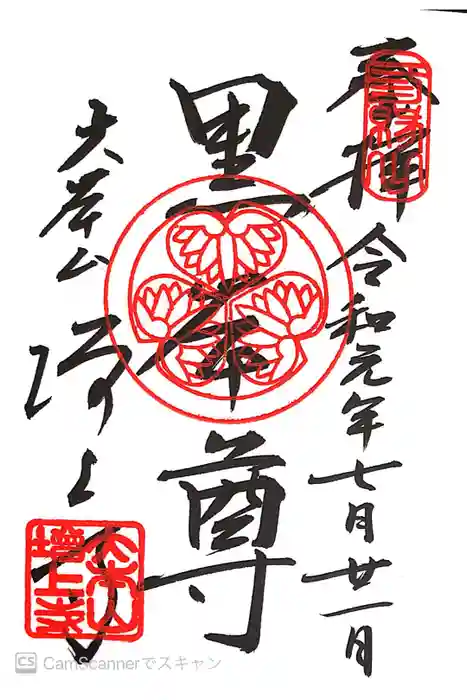 奉拝
令和元年七月廿一日
黒本尊
大本山 増上寺
三縁山
大本山
増上寺
CS CamScannerでスキャン